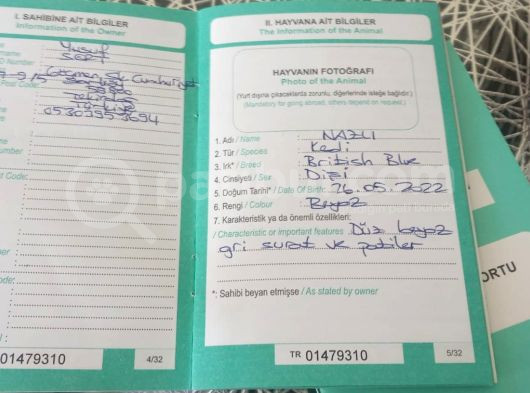 I. SAHİBİNE AİT BİLGİLER
Information of the Owner
Yusuf
SERT
Cumhuriyet
05303953694
01479310
4/32
II. HAYVANA AİT BİLGİLER
The Information of the Animal
HAYVANIN FOTOĞRAFI
Photo of the Animal
(Yurt dışına çıkacaklarda zorunlu, diğerlerinde isteğe bağlıdır.)
(Mandatory for going abroad, others depend on request.)
1. Adı / Name : NAZLI
2. Tür / Species : Kedi
3. Irk* / Breed : British Blue
4. Cinsiyeti / Sex : Dişi
5. Doğum Tarihi* / Date Of Birth: 26.05.2022
6. Rengi / Colour : Beyaz
7. Karakteristik ya da önemli özellikleri:
/ Characteristic or important features Düz beyaz
gri surat ve patiler
*: Sahibi beyan etmişse / As stated by owner
TR 01479310
5/32
ORTU